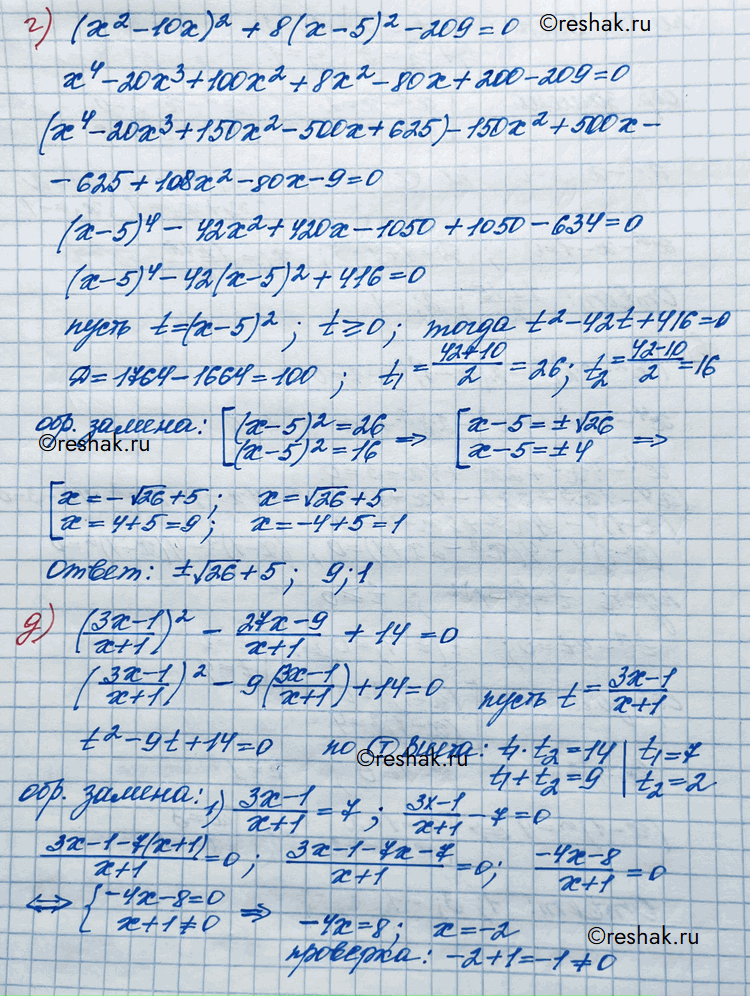 ©reshak.ru
г) (x² - 10x)² + 8(x - 5)² - 209 = 0
x⁴ - 20x³ + 100x² + 8x² - 80x + 200 - 209 = 0
(x⁴ - 20x³ + 150x² - 500x + 625) - 150x² + 500x -
- 625 + 108x² - 80x - 9 = 0
(x - 5)⁴ - 42x² + 420x - 1050 + 1050 - 634 = 0
(x - 5)⁴ - 42(x - 5)² + 416 = 0
пусть t = (x - 5)²; t ≥ 0; тогда t² - 42t + 416 = 0
D = 1764 - 1664 = 100; t₁ = (42+10)/2 = 26; t₂ = (42-10)/2 = 16
обр. замена: [ (x - 5)² = 26 ; (x - 5)² = 16 ⇒ [ x - 5 = ±√26 ; x - 5 = ±4 ⇒
©reshak.ru ©reshak.ru
[ x = -√26 + 5; x = √26 + 5
x = 4 + 5 = 9; x = -4 + 5 = 1
Ответ: ±√26 + 5; 9; 1
д) ((3x-1)/(x+1))² - (27x-9)/(x+1) + 14 = 0
((3x-1)/(x+1))² - 9((3x-1)/(x+1)) + 14 = 0 пусть t = (3x-1)/(x+1)
t² - 9t + 14 = 0 по т Виета: t₁ · t₂ = 14 | t₁ = 7
t₁ + t₂ = 9 | t₂ = 2
©reshak.ru
обр. замена: 1) (3x-1)/(x+1) = 7; (3x-1)/(x+1) - 7 = 0
(3x-1-7(x+1))/(x+1) = 0; (3x-1-7x-7)/(x+1) = 0; (-4x-8)/(x+1) = 0
⇔ { -4x - 8 = 0 ; x + 1 ≠ 0 ⇒ -4x = 8; x = -2
проверка: -2 + 1 = -1 ≠ 0
©reshak.ru